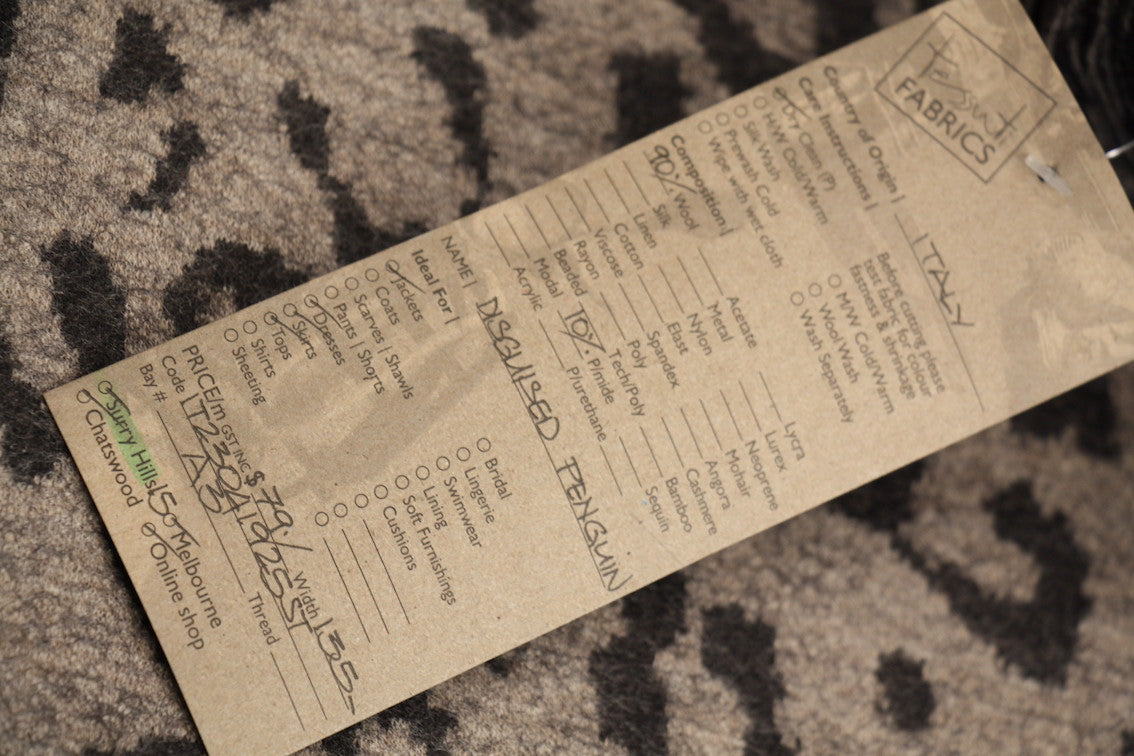 Tessuti
FABRICS
Country of Origin | ITALY
Care Instructions | Before cutting please
test fabric for colour
fastness & shrinkage
Dry Clean (P)
H/W Cold/Warm
Silk Wash
Prewash Cold
Wipe with wet cloth
M/W Cold/Warm
Wool Wash
Wash Separately
Composition |
90% Wool
Silk
Linen
Cotton
Viscose
Rayon
Beaded
Modal
Acrylic
Acetate
Metal
Nylon
Elast
Spandex
Poly
Tech/Poly
10% P/mide
P/urethane
Lycra
Lurex
Neoprene
Mohair
Angora
Cashmere
Bamboo
Sequin
NAME | DISGUISED PENGUIN
Ideal For |
Jackets
Coats
Scarves | Shawls
Pants | Shorts
Dresses
Skirts
Tops
Shirts
Sheeting
Bridal
Lingerie
Swimwear
Lining
Soft Furnishings
Cushions
PRICE/m GST INC $ 79/ Width 135-
Code IT230A1925ST
Bay # A3 Thread
Surry Hills 15 Melbourne
Chatswood Online shop